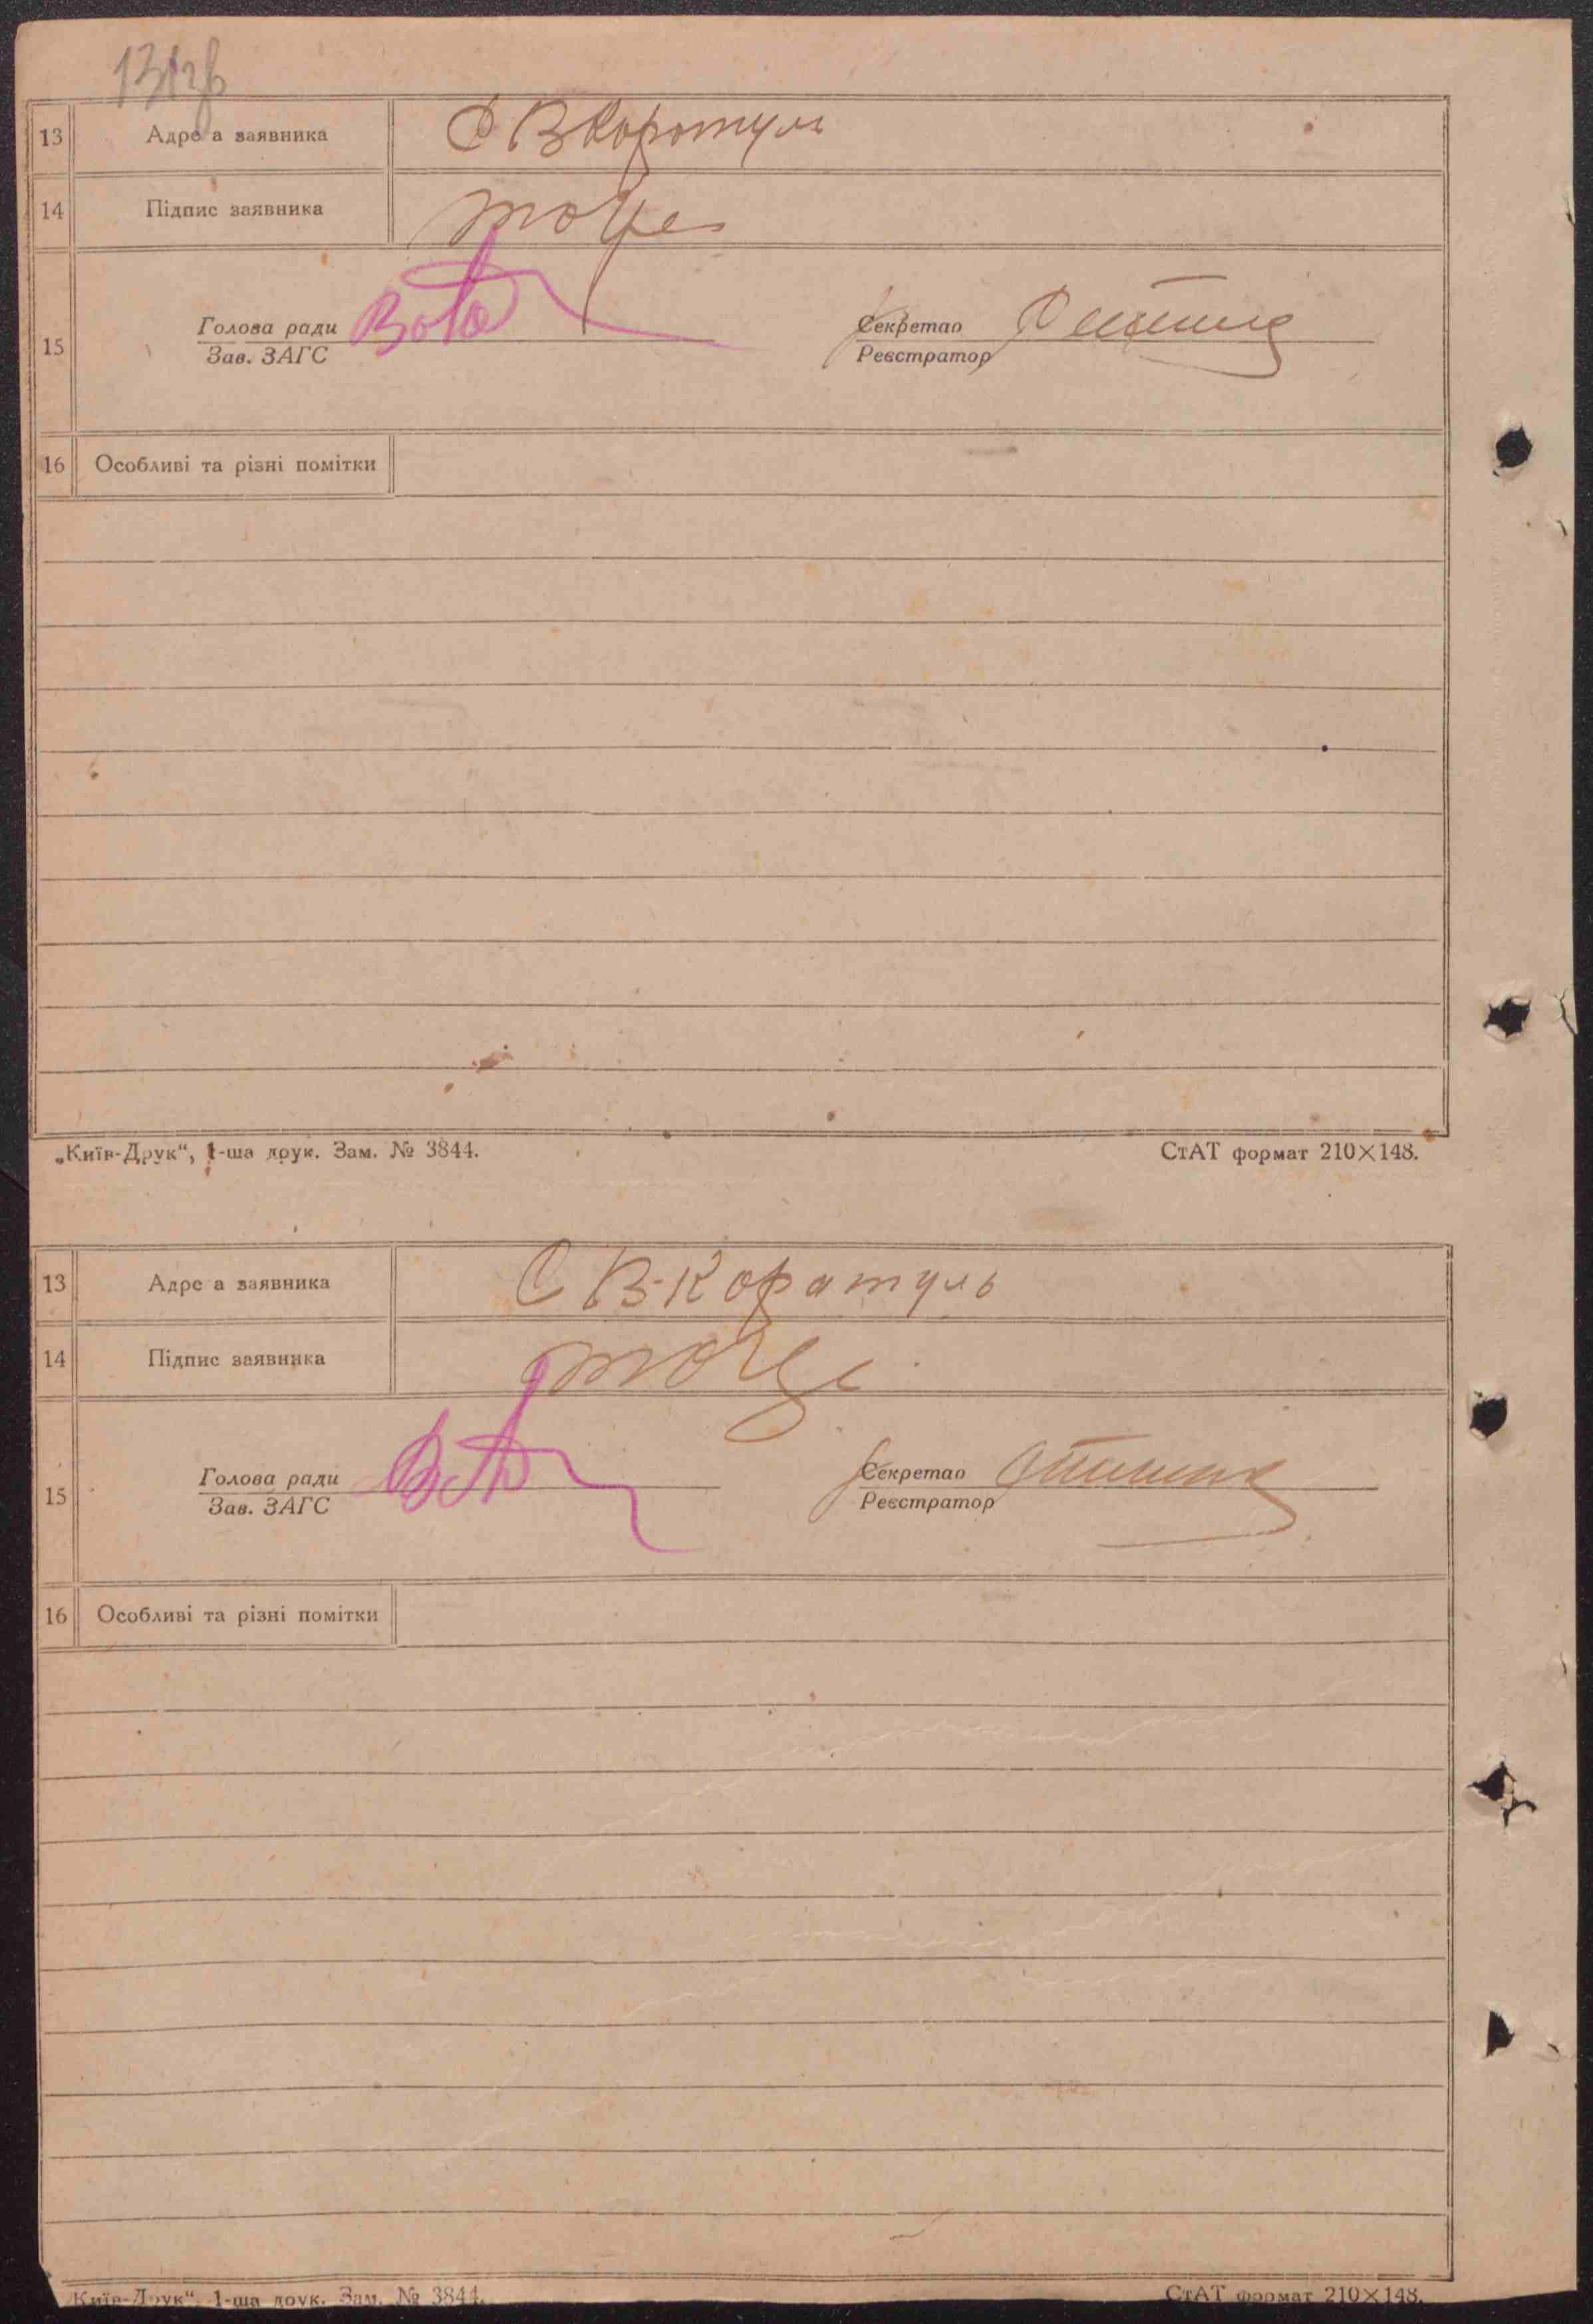 13 Адреса заявника С В Коротуль
14 Підпис заявника
15 Голова ради
Зав. ЗАГС
Секретар
Реєстратор
16 Особливі та різні помітки
„Київ-Друк“, 1-ша друк. Зам. № 3844.
СтАТ формат 210×148.
13 Адреса заявника С В-Коратуль
14 Підпис заявника
15 Голова ради
Зав. ЗАГС
Секретар
Реєстратор
16 Особливі та різні помітки
„Київ-Друк“, 1-ша друк. Зам. № 3844.
СтАТ формат 210×148.